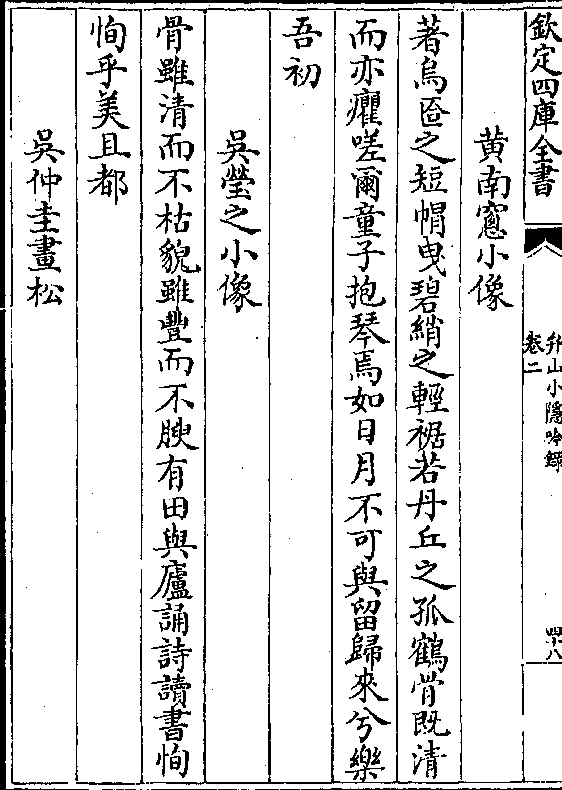 欽定四庫全書
卷二
升山小隱吟錄
四十八
黄南窻小像
著烏匼之短帽曳碧綃之輕裾若丹丘之孤鶴骨既清
而亦癯嗟爾童子抱琴焉如日月不可與留歸來兮樂
吾初
吳瑩之小像
骨雖清而不枯貌雖豐而不腴有田與廬誦詩讀書恂
恂乎美且都
吳仲圭畫松